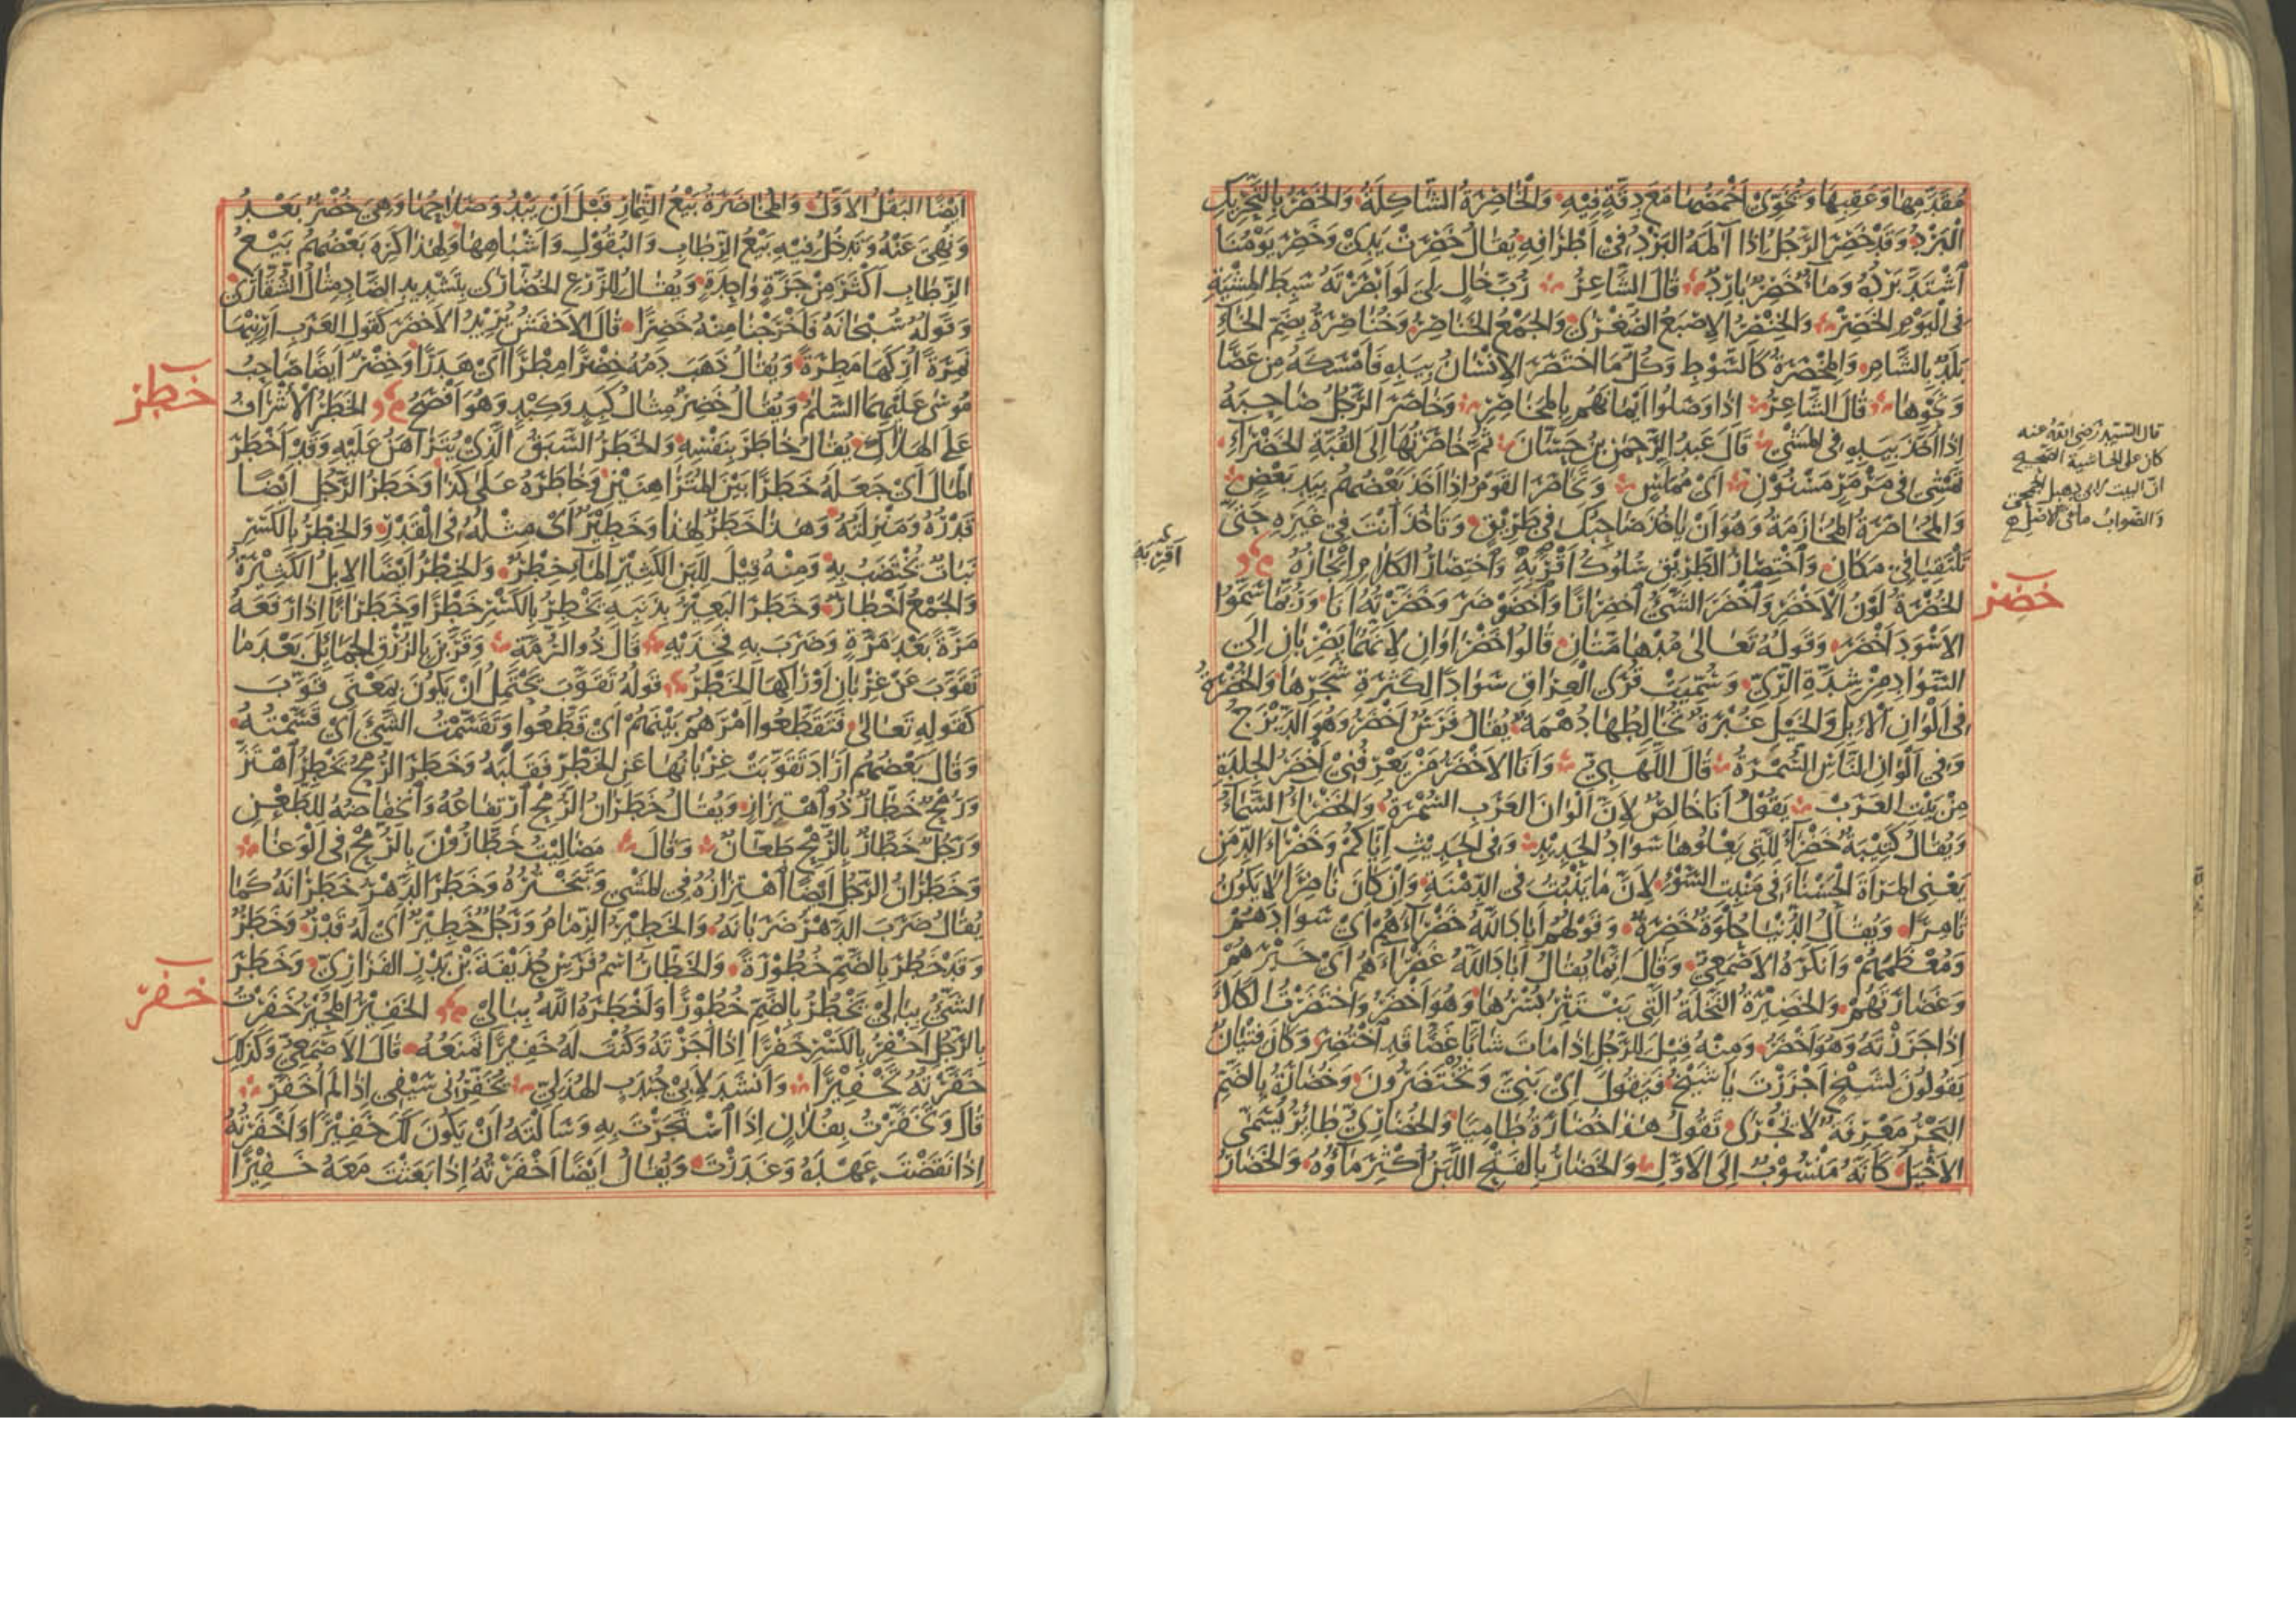 مُقَدَّمِهَا وَعَقِبِهَا وَتَخْوِيَ أَخْمَصِهَا مَعَ دِقَّةٍ فِيهِ وَالْخَاصِرَةُ الشَّاكِلَةُ وَالْخَصَرُ بِالتَّحْرِيكِ
الْبَرْدُ وَقَدْ خَصِرَ الرَّجُلُ إِذَا آلَمَهُ الْبَرْدُ فِي أَطْرَافِهِ يُقَالُ خَصِرَتْ يَدِي وَخَصِرَ يَوْمُنَا
اشْتَدَّ بَرْدُهُ وَمَاءٌ خَصِرٌ بَارِدٌ قَالَ الشَّاعِرُ رُبَّ خَالٍ لِيَ لَوْ أَبْصَرْتَهُ سَبِطِ الْمِشْيَةِ
فِي الْيَوْمِ الْخَصِرْ وَالْخِنْصِرُ الْإِصْبَعُ الصُّغْرَى وَالْجَمْعُ الْخَنَاصِرُ وَخُنَاصِرَةُ بِضَمِّ الْخَاءِ
بَلَدٌ بِالشَّامِ وَالْمِخْصَرَةُ كَالسَّوْطِ وَكُلُّ مَا اخْتَصَرَ الْإِنْسَانُ بِيَدِهِ فَأَمْسَكَهُ مِنْ عَصًا
وَنَحْوِهَا قَالَ الشَّاعِرُ إِذَا وَصَلُوا أَيْمَانَهُمْ بِالْمَخَاصِرِ وَخَاصَرَ الرَّجُلُ صَاحِبَهُ
إِذَا أَخَذَ بِيَدِهِ فِي الْمَشْيِ قَالَ عَبْدُ الرَّحْمٰنِ بْنُ حَسَّانَ ثُمَّ خَاصَرْتُهَا إِلَى الْقُبَّةِ الْخَضْرَاءِ
تَمْشِي فِي مَرْمَرٍ مَسْنُونِ أَيْ مُمَلَّسٍ وَتَخَاصَرَ الْقَوْمُ إِذَا أَخَذَ بَعْضُهُمْ بِيَدِ بَعْضٍ
وَالْمُخَاصَرَةُ الْمُخَازَمَةُ وَهُوَ أَنْ يَأْخُذَ صَاحِبُكَ فِي طَرِيقٍ وَتَأْخُذَ أَنْتَ فِي غَيْرِهِ حَتَّى
تَلْتَقِيَا فِي مَكَانٍ وَاخْتِصَارُ الطَّرِيقِ سُلُوكُ أَقْرَبِهِ وَاخْتِصَارُ الْكَلَامِ إِيجَازُهُ
الْخُضْرَةُ لَوْنُ الْأَخْضَرِ وَاخْضَرَّ الشَّيْءُ اخْضِرَارًا وَاخْضَوْضَرَ وَخَضَّرْتُهُ أَنَا وَرُبَّمَا سَمَّوُا
الْأَسْوَدَ أَخْضَرَ وَقَوْلُهُ تَعَالَى مُدْهَامَّتَانِ قَالُوا خَضْرَاوَانِ لِأَنَّهُمَا يَضْرِبَانِ إِلَى
السَّوَادِ مِنْ شِدَّةِ الرِّيِّ وَسُمِّيَتْ قُرَى الْعِرَاقِ سَوَادًا لِكَثْرَةِ شَجَرِهَا وَالْخُضْرَةُ
فِي أَلْوَانِ الْإِبِلِ وَالْخَيْلِ غُبْرَةٌ تُخَالِطُهَا دُهْمَةٌ يُقَالُ فَرَسٌ أَخْضَرُ وَهُوَ الدَّيْزَجُ
وَفِي أَلْوَانِ النَّاسِ السُّمْرَةُ قَالَ اللَّهَبِيُّ وَأَنَا الْأَخْضَرُ مَنْ يَعْرِفُنِي أَخْضَرُ الْجِلْدَةِ
مِنْ بَيْتِ الْعَرَبْ يَقُولُ أَنَا خَالِصٌ لِأَنَّ أَلْوَانَ الْعَرَبِ السُّمْرَةُ وَالْخَضْرَاءُ السَّمَاءُ
وَيُقَالُ كَتِيبَةٌ خَضْرَاءُ لِلَّتِي يَعْلُوهَا سَوَادُ الْحَدِيدِ وَفِي الْحَدِيثِ إِيَّاكُمْ وَخَضْرَاءَ الدِّمَنِ
يَعْنِي الْمَرْأَةَ الْحَسْنَاءَ فِي مَنْبِتِ السُّوءِ لِأَنَّ مَا يَنْبُتُ فِي الدِّمْنَةِ وَإِنْ كَانَ نَاضِرًا لَا يَكُونُ
ثَامِرًا وَيُقَالُ الدُّنْيَا حُلْوَةٌ خَضِرَةٌ وَقَوْلُهُمْ أَبَادَ اللّٰهُ خَضْرَاءَهُمْ أَيْ سَوَادَهُمْ
وَمُعْظَمَهُمْ وَأَنْكَرَهُ الْأَصْمَعِيُّ وَقَالَ إِنَّمَا يُقَالُ أَبَادَ اللّٰهُ غَضْرَاءَهُمْ أَيْ خَيْرَهُمْ
وَغَضَارَتَهُمْ وَالْخَضِيرَةُ النَّخْلَةُ الَّتِي يَنْتَثِرُ بُسْرُهَا وَهُوَ أَخْضَرُ وَاخْتَضَرْتُ الْكَلَأَ
إِذَا جَزَزْتَهُ وَهُوَ أَخْضَرُ وَمِنْهُ قِيلَ لِلرَّجُلِ إِذَا مَاتَ شَابًّا غَضًّا قَدِ اخْتُضِرَ وَكَانَ فِتْيَانٌ
يَقُولُونَ لِشَيْخٍ أَجْزَزْتَ يَا شَيْخُ فَيَقُولُ أَيْ بَنِيَّ وَتُخْتَضَرُونَ وَخُضَارَةُ بِالضَّمِّ
الْبَحْرُ مَعْرِفَةٌ لَا تُجْرَى تَقُولُ هٰذَا خُضَارَةُ طَامِيًا وَالْخُضَارِيُّ طَائِرٌ يُسَمَّى
الْأَخْيَلَ كَأَنَّهُ مَنْسُوبٌ إِلَى الْأَوَّلِ وَالْخَضَارُ بِالْفَتْحِ اللَّبَنُ أُكْثِرَ مَاؤُهُ وَالْخَضَارُ
قال السيد رضي الله عنه
كان على الحاشية الصحيح
ان البيت لابي دهبل الجمحي
والصواب ما في الاصل
خضر
اقربه
أَيْضًا الْبَقْلُ الْأَوَّلُ وَالْمُخَاضَرَةُ بَيْعُ الثِّمَارِ قَبْلَ أَنْ يَبْدُوَ صَلَاحُهَا وَهِيَ خُضْرٌ بَعْدُ
وَنُهِيَ عَنْهُ وَتَدْخُلُ فِيهِ بَيْعُ الرِّطَابِ وَالْبُقُولِ وَأَشْبَاهِهَا وَلِهٰذَا كَرِهَ بَعْضُهُمْ بَيْعَ
الرِّطَابِ أَكْثَرَ مِنْ جَزَّةٍ وَاحِدَةٍ وَيُقَالُ لِلزَّرْعِ الْخُضَّارَى بِتَشْدِيدِ الضَّادِ مِثَالُ الشُّقَّارَى
وَقَوْلُهُ سُبْحَانَهُ فَأَخْرَجْنَا مِنْهُ خَضِرًا قَالَ الْأَخْفَشُ يُرِيدُ الْأَخْضَرَ كَقَوْلِ الْعَرَبِ أَرِنِيهَا
نَمِرَةً أُرِكَهَا مَطِرَةً وَيُقَالُ ذَهَبَ دَمُهُ خِضْرًا مِضْرًا أَيْ هَدَرًا وَخِضْرٌ أَيْضًا صَاحِبُ
مُوسَى عَلَيْهِمَا السَّلَامُ وَيُقَالُ خَضِرٌ مِثَالُ كَبِدٍ وَكِبْدٍ وَهُوَ أَفْصَحُ الْخَطَرُ الْإِشْرَافُ
عَلَى الْهَلَاكِ يُقَالُ خَاطَرَ بِنَفْسِهِ وَالْخَطَرُ السَّبَقُ الَّذِي يُتَرَاهَنُ عَلَيْهِ وَقَدْ أَخْطَرَ
الْمَالَ أَيْ جَعَلَهُ خَطَرًا بَيْنَ الْمُتَرَاهِنِينَ وَخَاطَرَهُ عَلَى كَذَا وَخَطَرُ الرَّجُلِ أَيْضًا
قَدْرُهُ وَمَنْزِلَتُهُ وَهٰذَا خَطَرٌ لِهٰذَا وَخَطِيرٌ أَيْ مِثْلُهُ فِي الْقَدْرِ وَالْخِطْرُ بِالْكَسْرِ
نَبَاتٌ يُخْتَضَبُ بِهِ وَمِنْهُ قِيلَ لِلَّبَنِ الْكَثِيرِ الْمَاءِ خِطْرٌ وَالْخِطْرُ أَيْضًا الْإِبِلُ الْكَثِيرَةُ
وَالْجَمْعُ أَخْطَارٌ وَخَطَرَ الْبَعِيرُ بِذَنَبِهِ يَخْطِرُ بِالْكَسْرِ خَطْرًا وَخَطَرَانًا إِذَا رَفَعَهُ
مَرَّةً بَعْدَ مَرَّةٍ وَضَرَبَ بِهِ فَخِذَيْهِ قَالَ ذُو الرُّمَّةِ وَقَرَّبْنَ بِالزُّرْقِ الْجَمَائِلَ بَعْدَمَا
تَقَوَّبَ عَنْ غِرْبَانِ أَوْرَاكِهَا الْخَطْرُ قَوْلُهُ تَقَوَّبَ يَحْتَمِلُ أَنْ يَكُونَ بِمَعْنَى قَوَّبَ
كَقَوْلِهِ تَعَالَى فَتَقَطَّعُوا أَمْرَهُمْ بَيْنَهُمْ أَيْ قَطَّعُوا وَتَقَسَّمْتُ الشَّيْءَ أَيْ قَسَّمْتُهُ
وَقَالَ بَعْضُهُمْ أَرَادَ تَقَوَّبَتْ غِرْبَانُهَا عَنِ الْخَطْرِ فَقَلَبَهُ وَخَطَرَ الرُّمْحُ يَخْطِرُ اهْتَزَّ
وَرُمْحٌ خَطَّارٌ ذُو اهْتِزَازٍ وَيُقَالُ خَطَرَانُ الرُّمْحِ ارْتِفَاعُهُ وَانْخِفَاضُهُ لِلطَّعْنِ
وَرَجُلٌ خَطَّارٌ بِالرُّمْحِ طَعَّانٌ وَقَالَ مَصَالِيتُ خَطَّارُونَ بِالرُّمْحِ فِي الْوَغَا
وَخَطَرَانُ الرَّجُلِ أَيْضًا اهْتِزَازُهُ فِي الْمَشْيِ وَتَبَخْتُرُهُ وَخَطَرَ الدَّهْرُ خَطَرَانَهُ كَمَا
يُقَالُ ضَرَبَ الدَّهْرُ ضَرَبَانَهُ وَالْخَطِيرُ الزِّمَامُ وَرَجُلٌ خَطِيرٌ أَيْ لَهُ قَدْرٌ وَخَطَرٌ
وَقَدْ خَطُرَ بِالضَّمِّ خُطُورَةً وَالْخَطَّارُ اسْمُ فَرَسِ حُذَيْفَةَ بْنِ بَدْرٍ الْفَزَارِيِّ وَخَطَرَ
الشَّيْءُ بِبَالِي يَخْطُرُ بِالضَّمِّ خُطُورًا وَأَخْطَرَهُ اللّٰهُ بِبَالِي الْخَفِيرُ الْمُجِيرُ خَفَرْتُ
بِالرَّجُلِ أَخْفِرُ بِالْكَسْرِ خَفْرًا إِذَا أَجَرْتَهُ وَكُنْتَ لَهُ خَفِيرًا تَمْنَعُهُ قَالَ الْأَصْمَعِيُّ وَكَذٰلِكَ
خَفَّرْتُهُ تَخْفِيرًا وَأَنْشَدَ لِأَبِي جُنْدَبٍ الْهُذَلِيِّ يُخَفِّرُنِي سَيْفِي إِذَا لَمْ أُخَفَّرِ
قَالَ وَتَخَفَّرْتُ بِفُلَانٍ إِذَا اسْتَجَرْتَ بِهِ وَسَأَلْتَهُ أَنْ يَكُونَ لَكَ خَفِيرًا وَأَخْفَرْتُهُ
إِذَا نَقَضْتَ عَهْدَهُ وَغَدَرْتَ وَيُقَالُ أَيْضًا أَخْفَرْتُهُ إِذَا بَعَثْتَ مَعَهُ خَفِيرًا
خطر
خفر